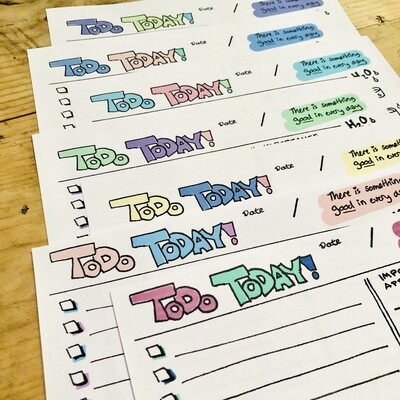 ToDo TODAY!
Date
/
There is something
good in every day
ToDo TODAY!
Date
/
There is something
good in every day
ToDo TODAY!
/
There is something
good in every day
ToDo TODAY!
Date
/
There is something
good in every day
H2O
ToDo TODAY!
Date
/
There is something
good in every day
ToDo TODAY!
Date
/
There is something
good in every day
ToDo TODAY!
Date
/